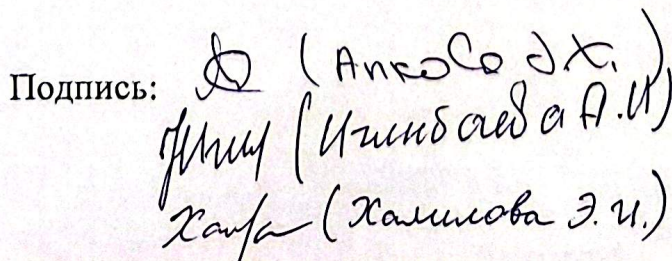 Подпись: (Апкосо д Х.)
(Игинбаева А.И)
(Халилова Э.И.)